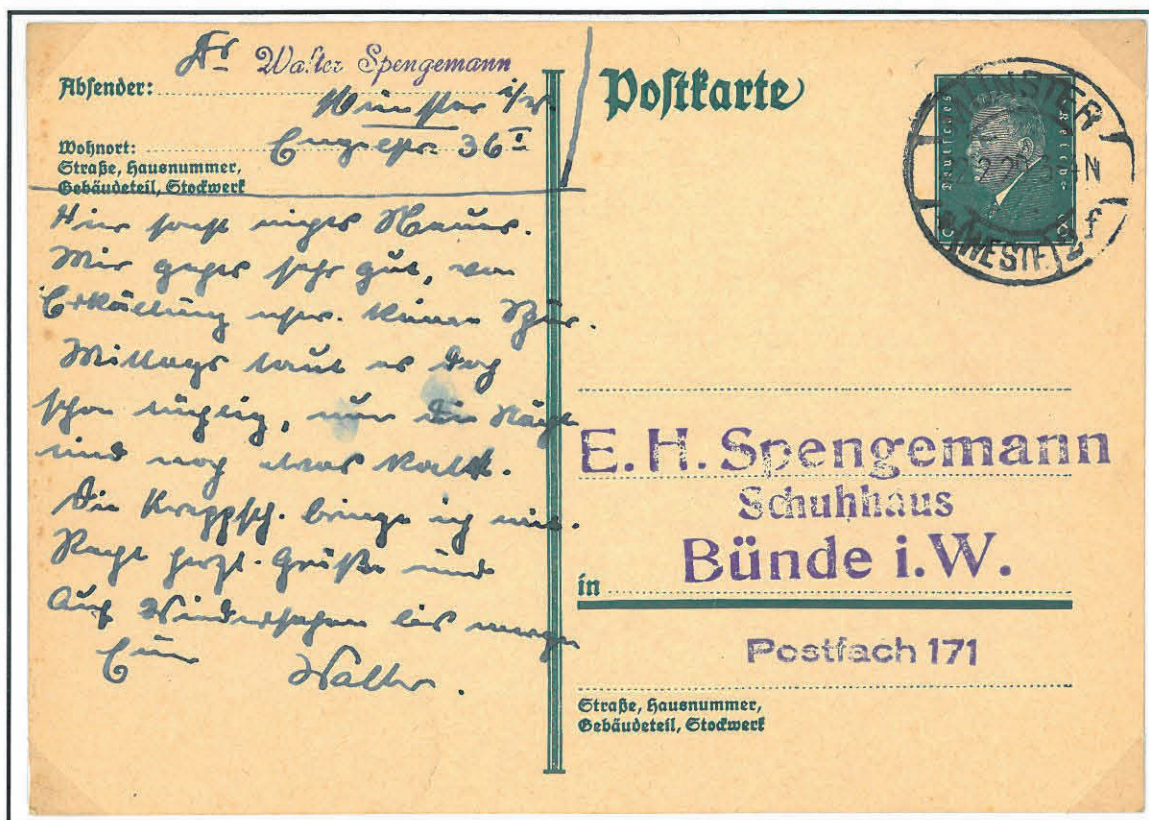 Absender: Walter Spengemann
Münster i/W
Wohnort: Engelstr. 36 I
Straße, Hausnummer,
Gebäudeteil, Stockwerk
Hier sonst nichts Neues.
Mir geht es sehr gut, von
Erkältung usw. keine Spur.
Mittags taut es doch
schon tüchtig, nur die Nächte
sind noch etwas kalt.
Die Kreppsch. bringe ich mit.
Recht herzl. Grüße und
Auf Wiedersehen bis morgen
Euer Walter.
Postkarte
Deutsches Reich
MÜNSTER
(WESTF.) 2 f
E. H. Spengemann
Schuhhaus
in Bünde i. W.
Postfach 171
Straße, Hausnummer,
Gebäudeteil, Stockwerk